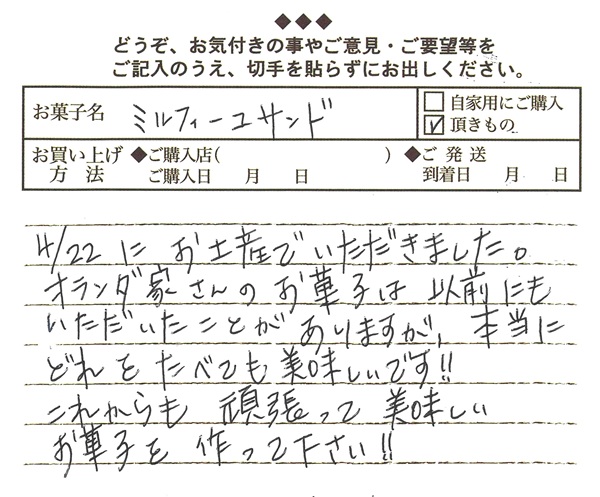 ◆◆◆
どうぞ、お気付きの事やご意見・ご要望等を
ご記入のうえ、切手を貼らずにお出しください。
お菓子名 ミルフィーユサンド □自家用にご購入
☑頂きもの
お買い上げ方法 ◆ご購入店( ) ◆ご発送
ご購入日 月 日 到着日 月 日
4/22にお土産でいただきました。
オランダ家さんのお菓子は以前にも
いただいたことがありますが、本当に
どれをたべても美味しいです!!
これからも頑張って美味しい
お菓子を作って下さい!!